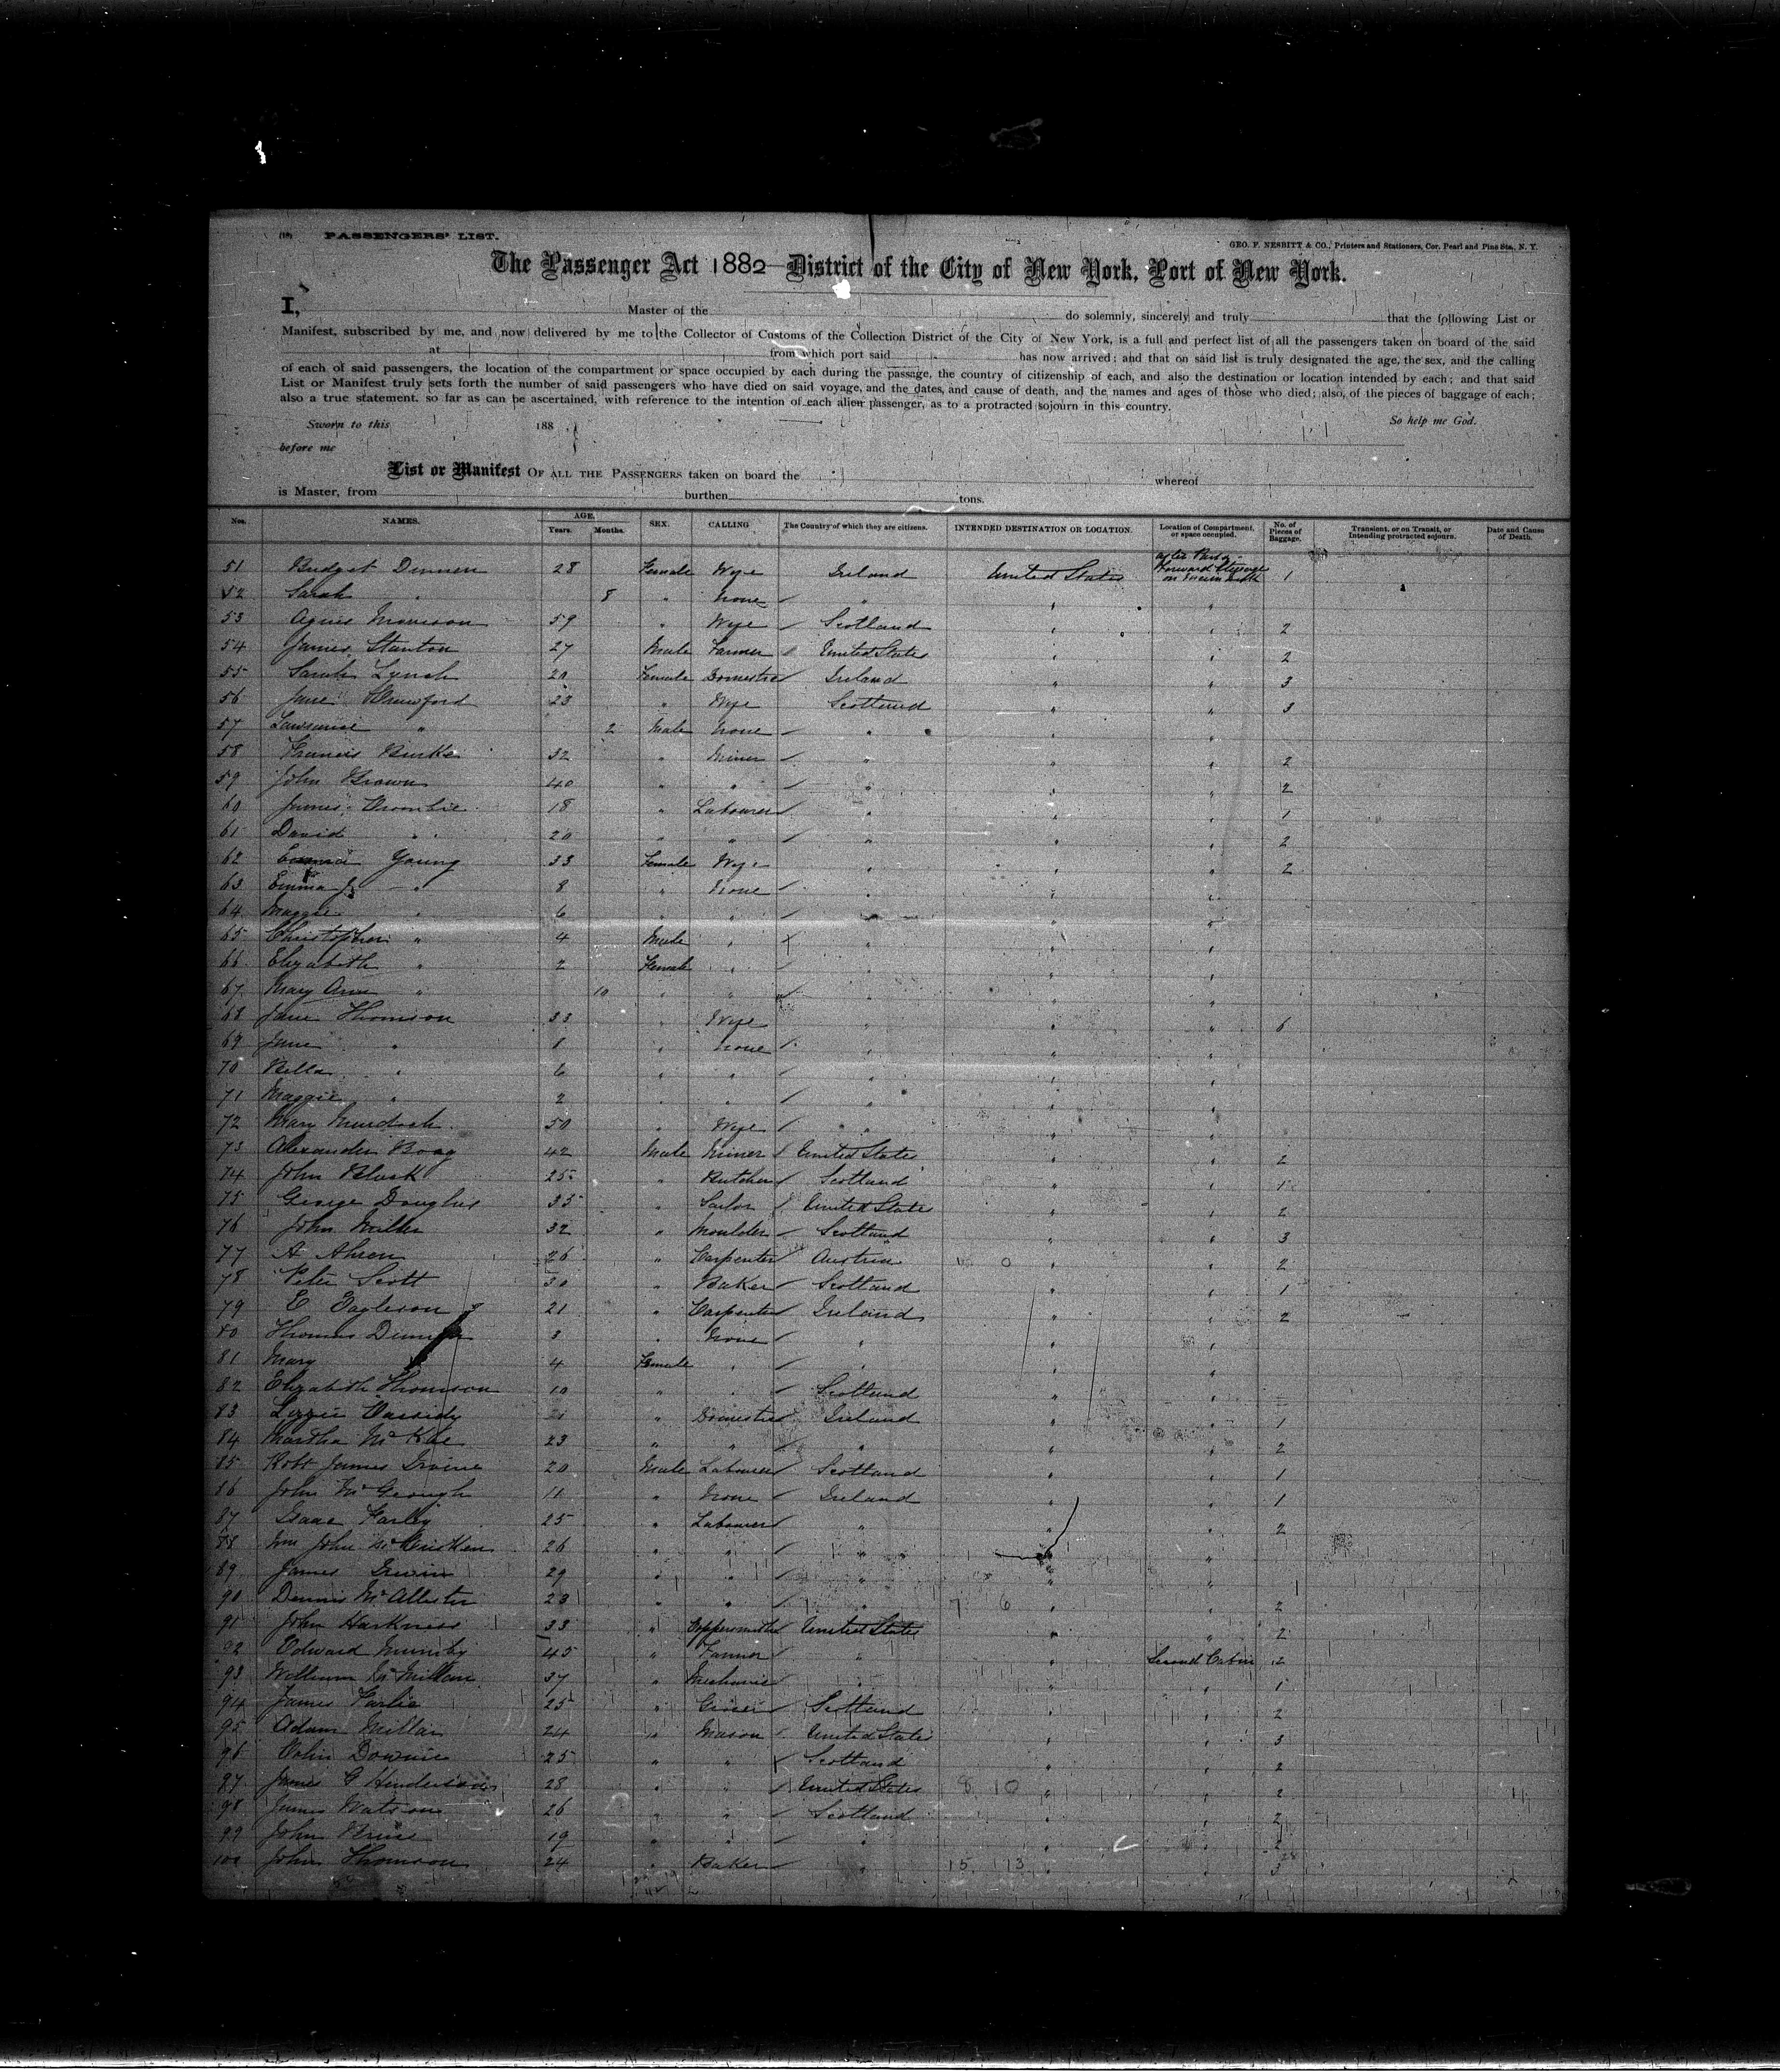 PASSENGERS' LIST.
GEO. F. NESBITT & CO., Printers and Stationers, Cor. Pearl and Pine Sts., N. Y.
The Passenger Act 1882 District of the City of New York, Port of New York.
I, Master of the do solemnly, sincerely and truly that the following List or
Manifest, subscribed by me, and now delivered by me to the Collector of Customs of the Collection District of the City of New York, is a full and perfect list of all the passengers taken on board of the said
at from which port said has now arrived; and that on said list is truly designated the age, the sex, and the calling
of each of said passengers, the location of the compartment or space occupied by each during the passage, the country of citizenship of each, and also the destination or location intended by each; and that said
List or Manifest truly sets forth the number of said passengers who have died on said voyage, and the dates, and cause of death, and the names and ages of those who died; also, of the pieces of baggage of each;
also a true statement, so far as can be ascertained, with reference to the intention of each alien passenger, as to a protracted sojourn in this country.
Sworn to this 188 So help me God.
before me
List or Manifest OF ALL THE PASSENGERS taken on board the whereof
is Master, from burthen tons.
Nos. NAMES. AGE. Years. Months. SEX. CALLING The Country of which they are citizens. INTENDED DESTINATION OR LOCATION. Location of Compartment, or space occupied. No. of Pieces of Baggage. Transient, or on Transit, or Intending protracted sojourn. Date and Cause of Death.
51 Bridget Dinnen 28 Female Wife Ireland United States 1
52 Sarah " 8 " None "
53 Agnes Morrison 59 " Wife Scotland " " 2
54 James Stanton 27 Male Farmer United States " " 2
55 Sarah Lynch 20 Female Domestic Ireland " " 3
56 Jane Crawford 23 " Wife Scotland " " 3
57 Lawrence " 2 Male None " " "
58 Francis Burke 32 " Miner " " " 2
59 John Brown 40 " " " " " 2
60 James Crombie 18 " Labourer " " " 1
61 David " 20 " " " " " 2
62 Young 33 Female Wife " " " 2
63 Emma J " 8 " None " " "
64 Maggie " 6 " " " " "
65 Christopher " 4 Male " " " "
66 Elizabeth " 2 Female " " " "
67 Mary Ann " 10 " " " " "
68 Jane Thomson 33 " Wife " " " 6
69 Jane " 8 " None " " "
70 Bella " 6 " " " " "
71 Maggie " 2 " " " " "
72 Mary Murdoch 50 " Wife " " "
73 Alexander Boag 42 Male Miner United States " " 2
74 John Black 25 " Butcher Scotland " " 1
75 George Douglas 35 " Sailor United States " " 2
76 John Miller 32 " Moulder Scotland " " 3
77 A Ahren 26 " Carpenter Austria " " 2
78 Peter Scott 30 " Baker Scotland " " 1
79 E Eagleson 21 " Carpenter Ireland " " 2
80 Thomas 3 " None " " "
81 Mary 4 Female " " " "
82 Elizabeth Thomson 10 " " Scotland " "
83 Lizzie Cassidy " Domestic Ireland " " 1
84 Martha McKee 23 " " " " " 2
85 Robt James Irvine 20 Male Labourer Scotland " " 1
86 John McGeough 11 " None Ireland " " 1
87 Isaac Farley 25 " Labourer " " " 2
88 Wm John 26 " " " " "
89 James 29 " " " " "
90 Dennis McAllister 23 " " " " " 2
91 John Harkness 33 " Coppersmith United States " " 2
92 Edward 45 " Farmer " " Second Cabin 2
93 William McMillan 37 " Mechanic " " " 1
94 James Fairlie 25 " Grocer Scotland " " 2
95 Adam Millar 24 " Mason United States " " 3
96 Colin Downie 25 " " Scotland " " 2
97 James G Henderson 28 " " United States " " 2
98 James Watson 26 " " Scotland " " 2
99 John 19 " " " " " 2
100 John Thomson 24 " Baker " " " 3